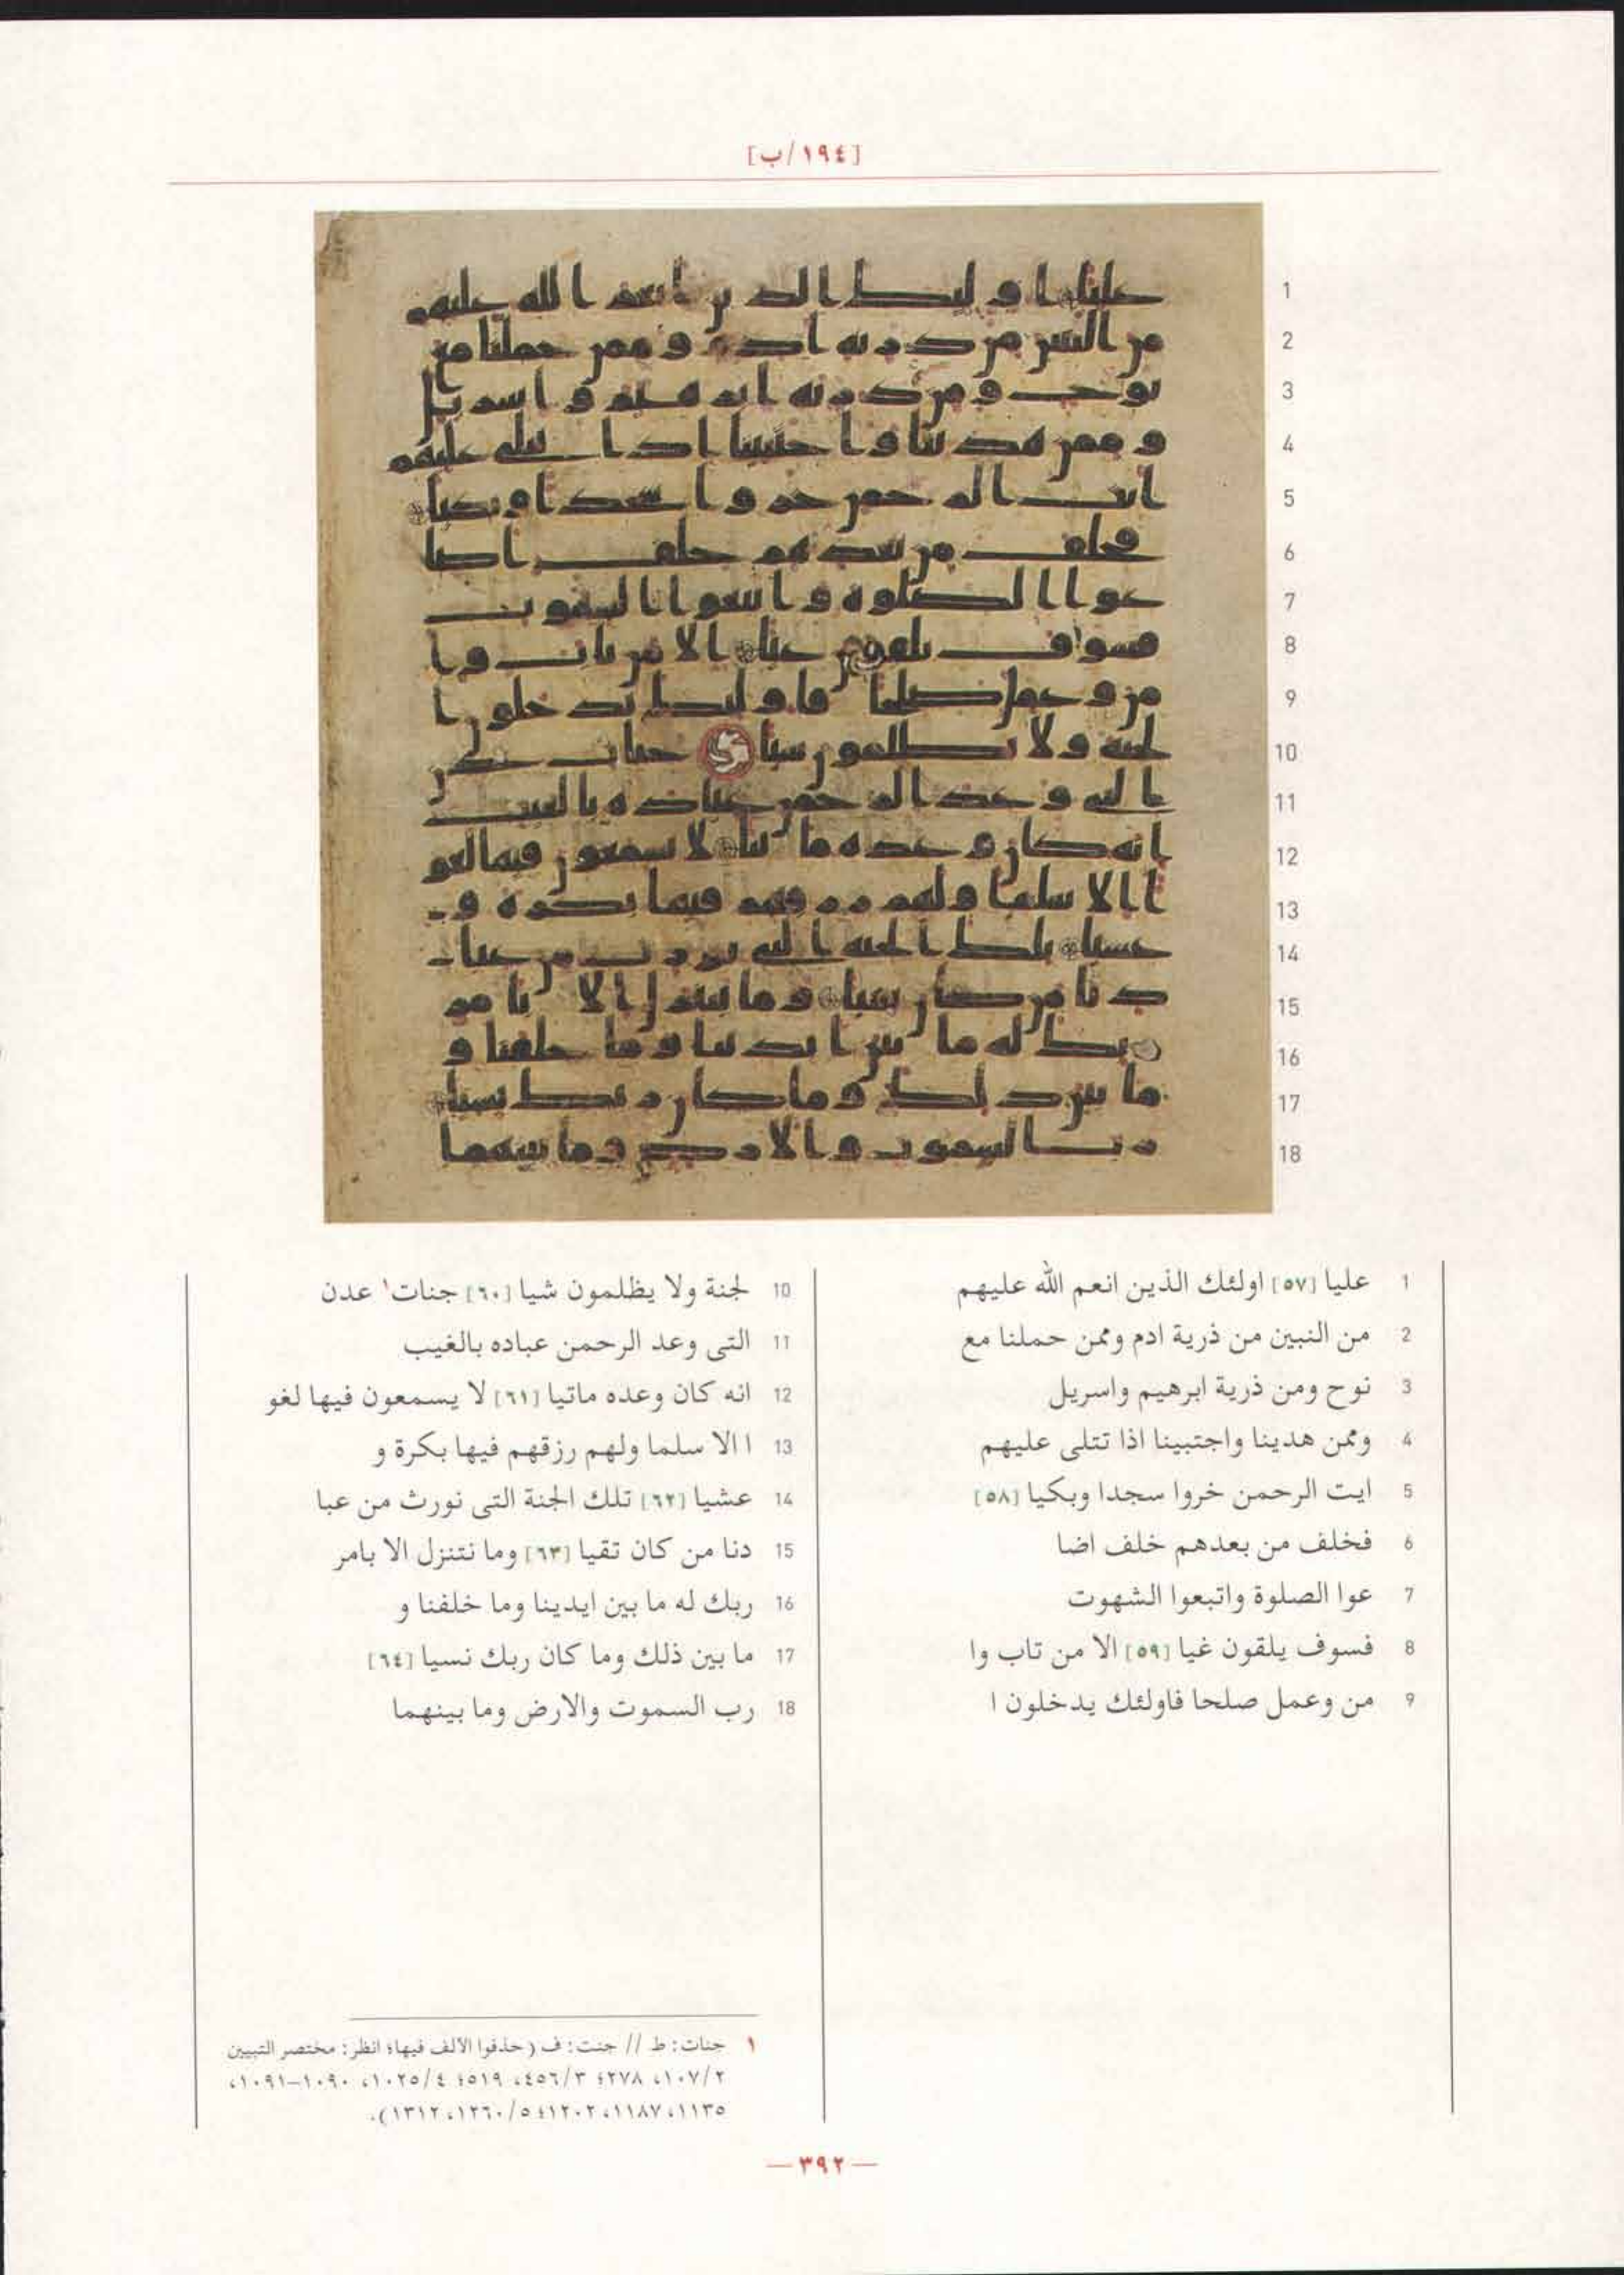 [١٩٤/ب]
1 عليا [٥٧] اولئك الذين انعم الله عليهم
2 من النبين من ذرية ادم وممن حملنا مع
3 نوح ومن ذرية ابرهيم واسريل
4 وممن هدينا واجتبينا اذا تتلى عليهم
5 ايت الرحمن خروا سجدا وبكيا [٥٨]
6 فخلف من بعدهم خلف اضا
7 عوا الصلوة واتبعوا الشهوت
8 فسوف يلقون غيا [٥٩] الا من تاب وا
9 من وعمل صلحا فاولئك يدخلون ا
10 لجنة ولا يظلمون شيا [٦٠] جنات١ عدن
11 التى وعد الرحمن عباده بالغيب
12 انه كان وعده ماتيا [٦١] لا يسمعون فيها لغو
13 ا الا سلما ولهم رزقهم فيها بكرة و
14 عشيا [٦٢] تلك الجنة التى نورث من عبا
15 دنا من كان تقيا [٦٣] وما نتنزل الا بامر
16 ربك له ما بين ايدينا وما خلفنا و
17 ما بين ذلك وما كان ربك نسيا [٦٤]
18 رب السموت والارض وما بينهما
١ جنات: ط // جنت: ف (حذفوا الألف فيها؛ انظر: مختصر التبيين
٢/١٠٧، ٢٧٨؛ ٣/٤٥٦، ٥١٩؛ ٤/١٠٢٥، ١٠٩٠-١٠٩١،
١١٣٥، ١١٨٧، ١٢٠٢؛ ٥/١٢٦٠، ١٣١٢).
— ٣٩٢ —